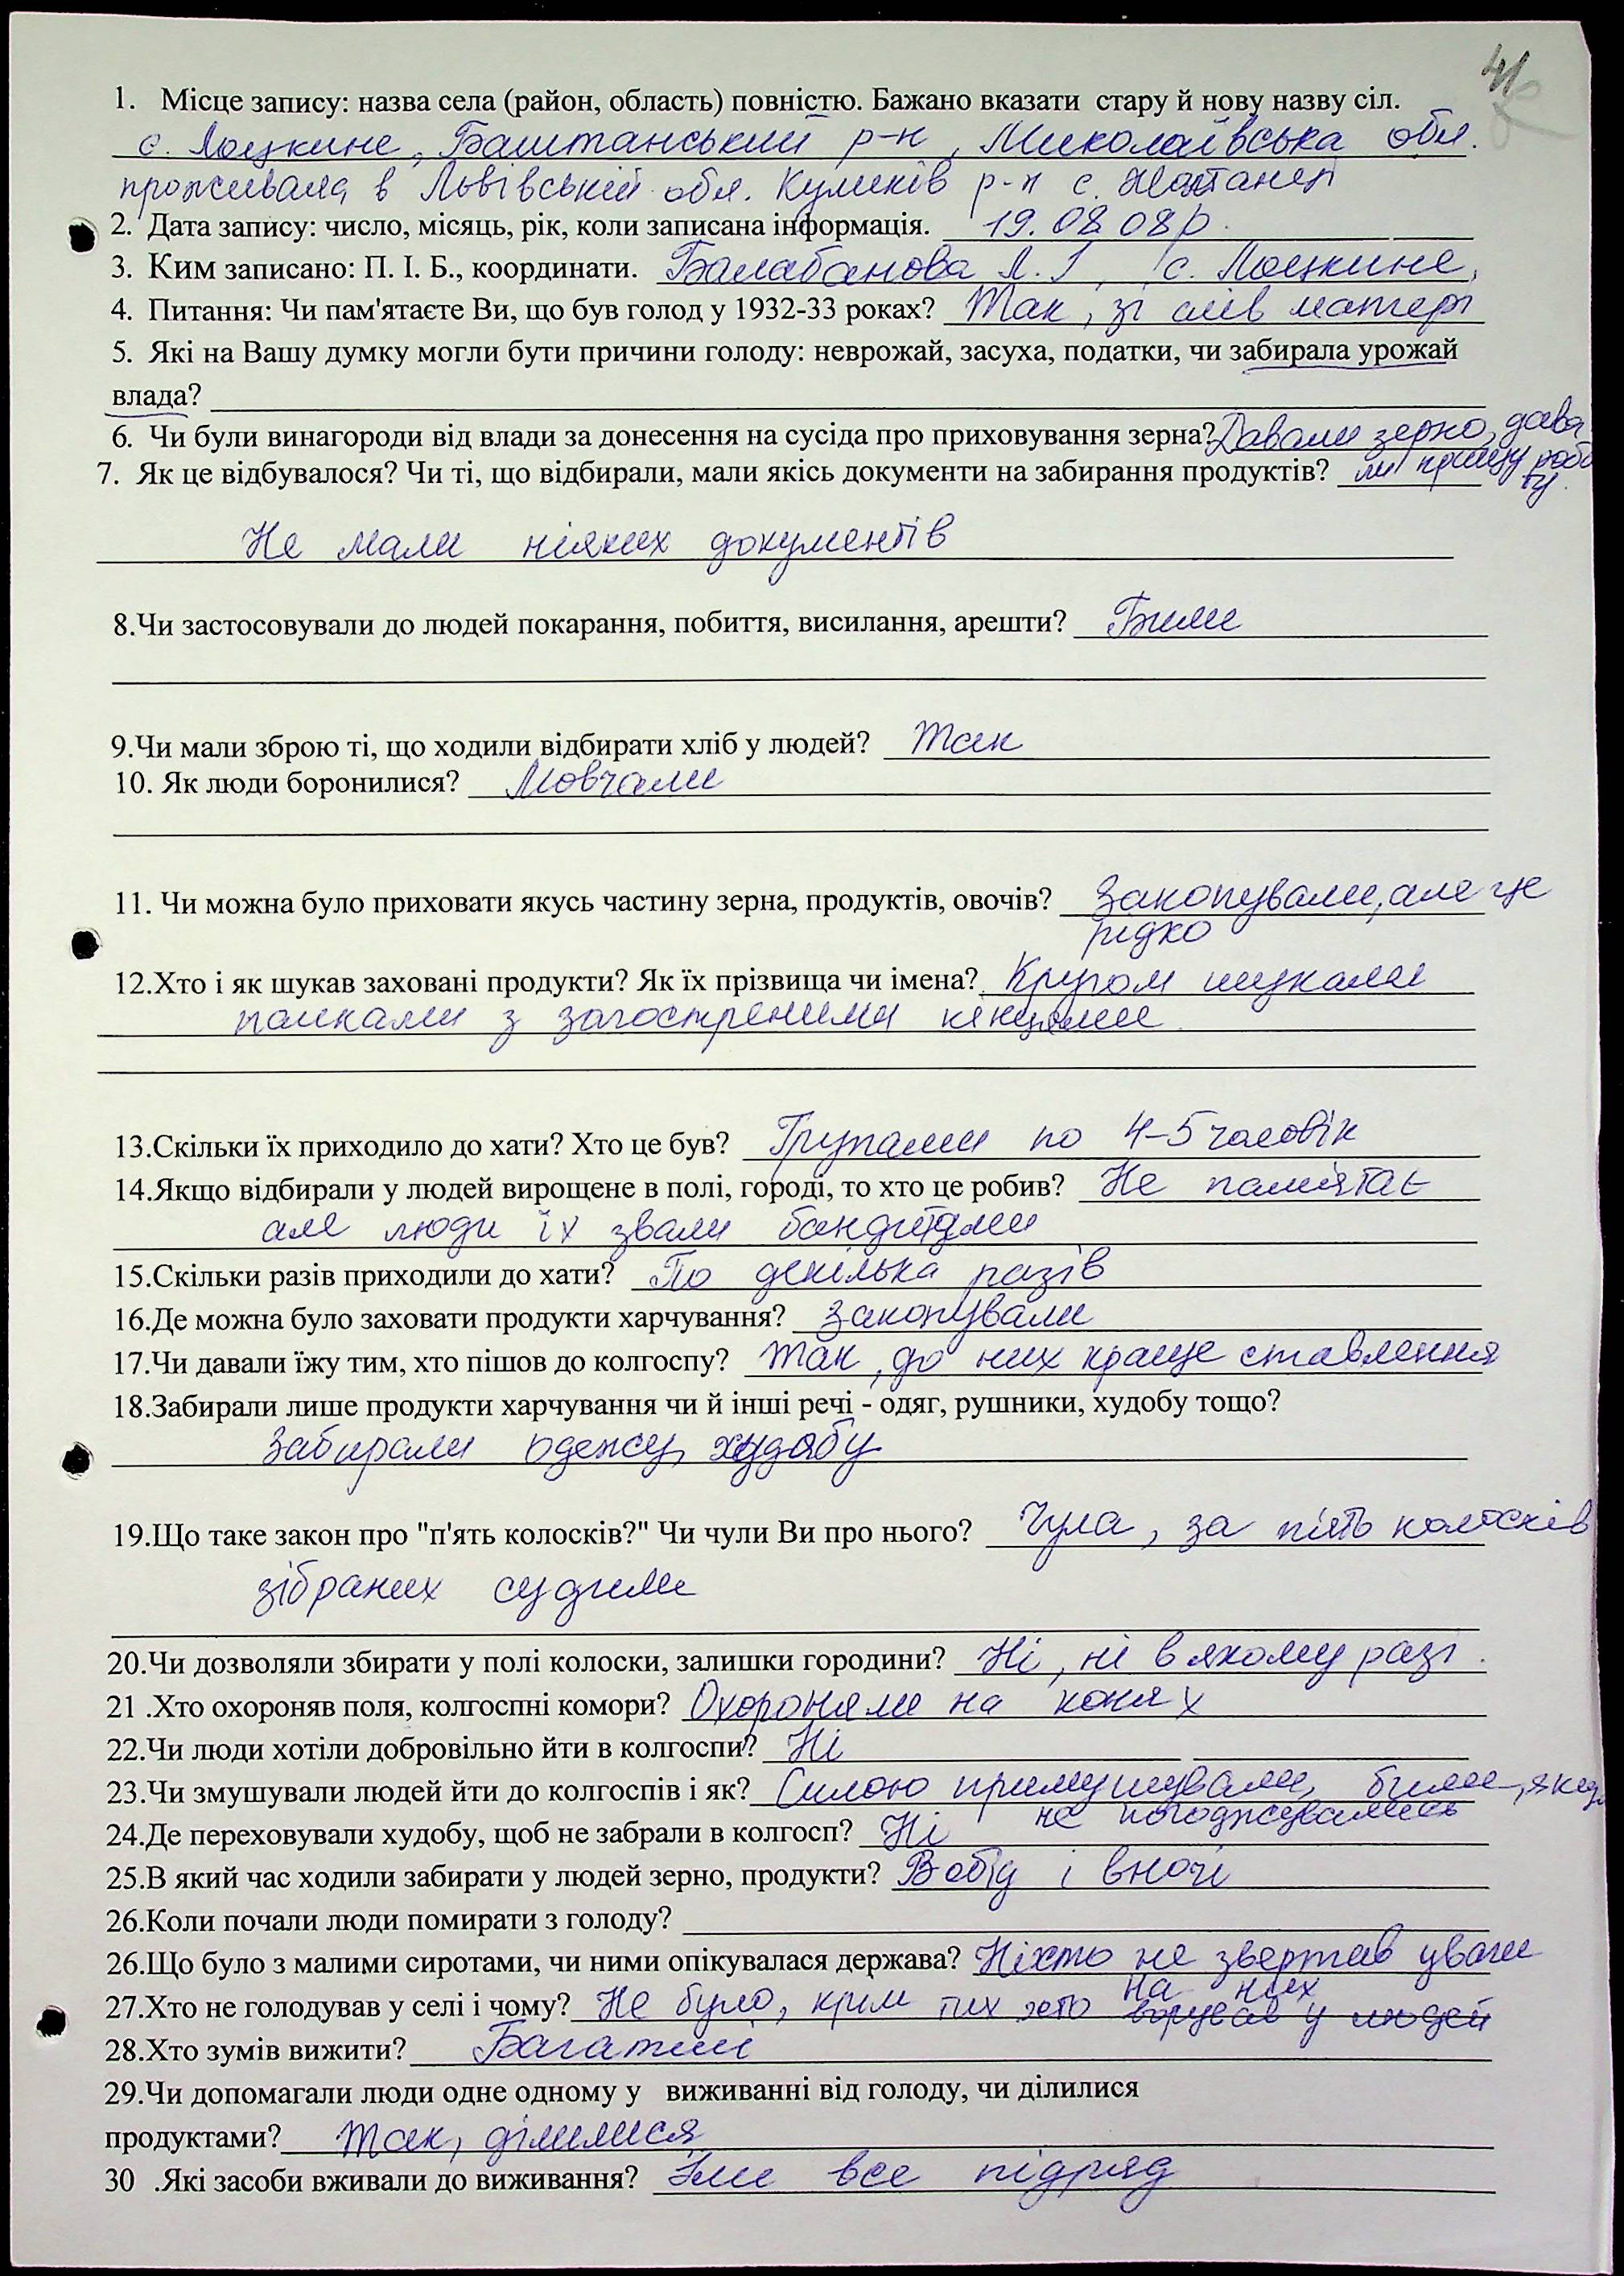 41
1. Місце запису: назва села (район, область) повністю. Бажано вказати стару й нову назву сіл.
с. Лоцкине, Баштанський р-н, Миколаївська обл.
проживала в Львівській обл. Куликів р-н с.
2. Дата запису: число, місяць, рік, коли записана інформація. 19.08.08р.
3. Ким записано: П. І. Б., координати. Балабанова Л. І, с. Лоцкине,
4. Питання: Чи пам'ятаєте Ви, що був голод у 1932-33 роках? Так, зі слів матері
5. Які на Вашу думку могли бути причини голоду: неврожай, засуха, податки, чи забирала урожай
влада?
6. Чи були винагороди від влади за донесення на сусіда про приховування зерна? Давали зерно, дава
7. Як це відбувалося? Чи ті, що відбирали, мали якісь документи на забирання продуктів? ли кращу робо
ту.
Не мали ніяких документів
8.Чи застосовували до людей покарання, побиття, висилання, арешти? Били
9.Чи мали зброю ті, що ходили відбирати хліб у людей? Так
10. Як люди боронилися? Мовчали
11. Чи можна було приховати якусь частину зерна, продуктів, овочів? Закопували, але це
рідко
12.Хто і як шукав заховані продукти? Як їх прізвища чи імена? Кругом шукали
палками з загостреними кінцями
13.Скільки їх приходило до хати? Хто це був? Групами по 4-5 чоловік
14.Якщо відбирали у людей вирощене в полі, городі, то хто це робив? Не памятає
але люди їх звали бандитами
15.Скільки разів приходили до хати? По декілька разів
16.Де можна було заховати продукти харчування? Закопували
17.Чи давали їжу тим, хто пішов до колгоспу? Так, до них краще ставлення
18.Забирали лише продукти харчування чи й інші речі - одяг, рушники, худобу тощо?
Забирали одежу, худобу
19.Що таке закон про "п'ять колосків?" Чи чули Ви про нього? Чула, за пять колосків
зібраних судили
20.Чи дозволяли збирати у полі колоски, залишки городини? Ні, ні в якому разі.
21 .Хто охороняв поля, колгоспні комори? Охороняли на конях
22.Чи люди хотіли добровільно йти в колгоспи? Ні
23.Чи змушували людей йти до колгоспів і як? Силою примушували, били, якщо
не погоджувались
24.Де переховували худобу, щоб не забрали в колгосп? Ні
25.В який час ходили забирати у людей зерно, продукти? В обід і вночі
26.Коли почали люди помирати з голоду?
26.Що було з малими сиротами, чи ними опікувалася держава? Ніхто не звертав уваги
на них
27.Хто не голодував у селі і чому? Не було, крім тих хто ворував у людей
28.Хто зумів вижити? Багатші
29.Чи допомагали люди одне одному у виживанні від голоду, чи ділилися
продуктами? Так, ділилися
30 .Які засоби вживали до виживання? Їли все підряд